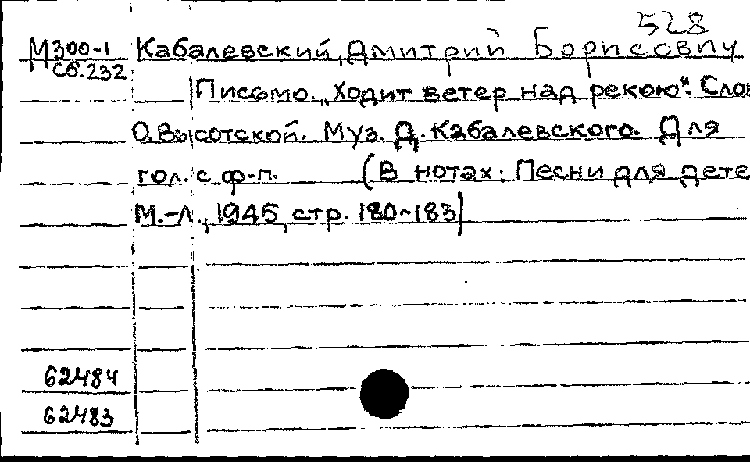 528
М300-1 Кабалевский, Дмитрий Борисович
Сб.232
Письмо. „Ходит ветер над рекою". Слов
О. Высотской. Муз. Д. Кабалевского. Для
гол. с ф-п. (В нотах: Песни для дете
М.-Л., 1945, стр. 180-183)
62484
62483